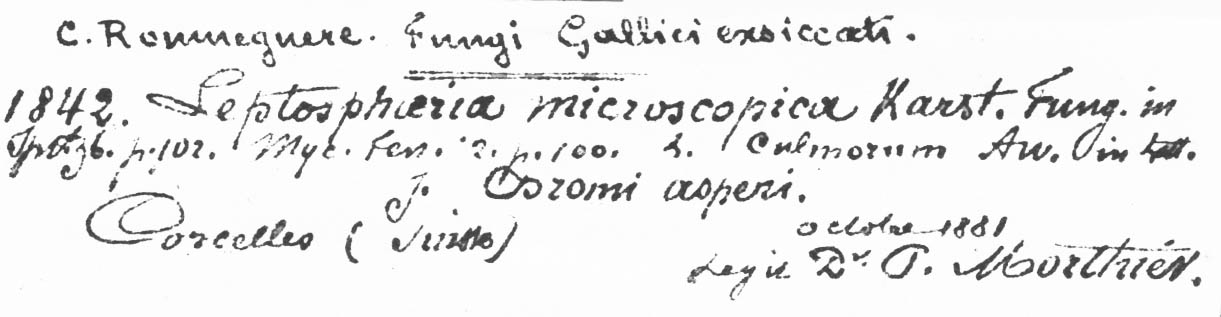 C. Roumeguere. Fungi Gallici exsiccati.
1842. Leptosphaeria microscopica Karst. Fung. in
Spetzb. p. 102. Myc. Fen. 2. p. 100. L. Culmorum Aw. in
f. Bromi asperi.
Corcelles (Suisse)
octobre 1881
Legit Dr. P. Morthier.